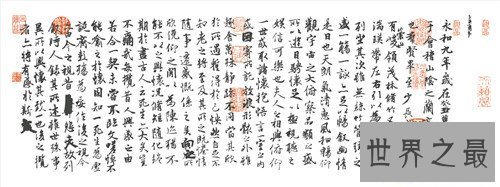 永和九年歲在癸丑
會稽山陰之蘭
也群賢畢至少長
有峻領茂林脩竹
湍暎帶左右引
列坐其次雖無絲竹管弦之
盛一觴一詠亦足以暢敘幽情
是日也天朗氣清惠風和暢仰
觀宇宙之大俯察品類之盛
所以遊目騁懷足以極視聽之
娛信可樂也夫人之相與俯仰
一世或取諸懷抱悟言一室之內
或因寄所託放浪形骸之外雖
趣舍萬殊靜躁不同當其欣
於所遇蹔得於己怏然自足不
知老之將至及其所之既惓情
隨事遷感慨係之矣向之所
欣俛仰之閒以為陳迹猶不
能不以之興懷況脩短隨化終
期於盡古人云死生亦大矣豈
不痛哉每攬昔人興感之由
若合一契未嘗不臨文嗟悼不
能喻之於懷固知一死生為虛
誕齊彭殤為妄作後之視今
亦由今之視昔悲夫故列
敘時人錄其所述雖世殊事
異所以興懷其致一也後之攬
者亦將有感於斯
世界之最